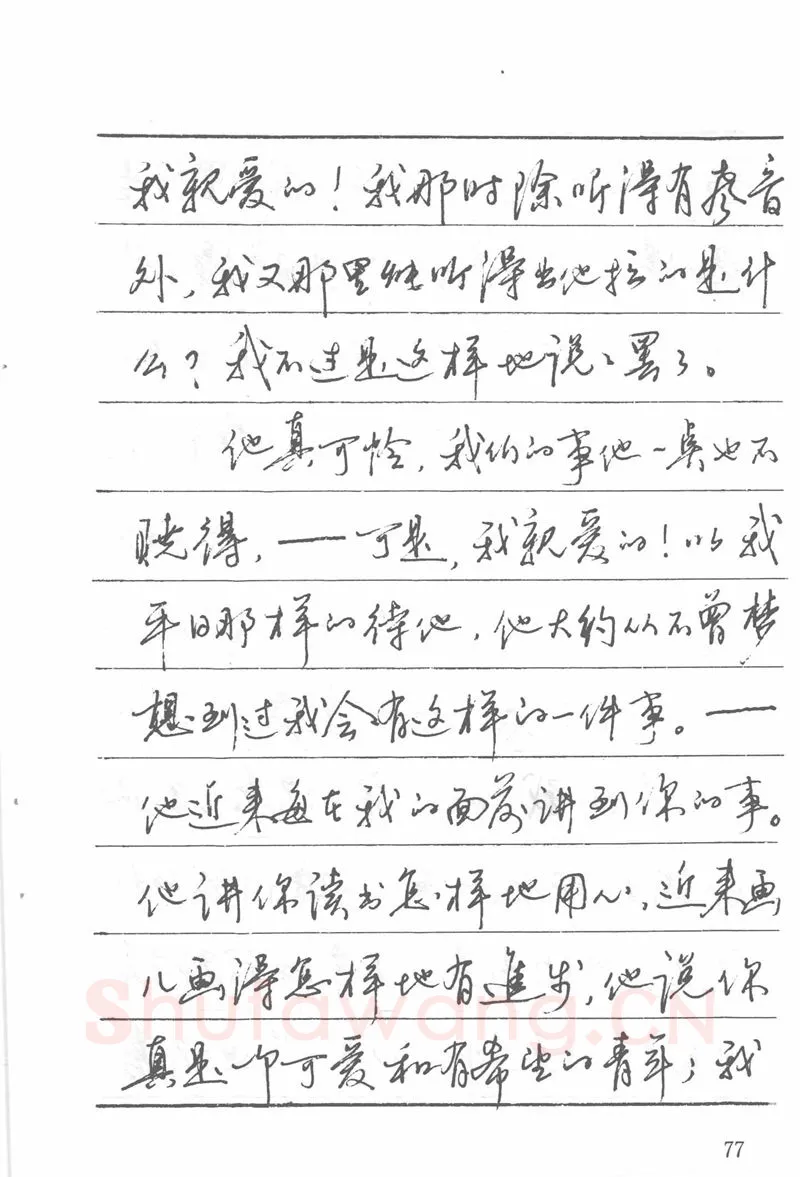 我亲爱的！我那时除听得有声音
外，我又那里能听得出他拉的是什
么？我不过是这样地说说罢了。
他真可怜，我们的事他一点也不
晓得，——可是，我亲爱的！以我
平日那样的待他，他大约从不曾梦
想到过我会有这样的一件事。——
他近来每在我的面前讲到你的事。
他讲你读书怎样地用心，近来画
儿画得怎样地有進步，他说你
真是个可爱和有希望的青年；我
Shufawang.CN
77